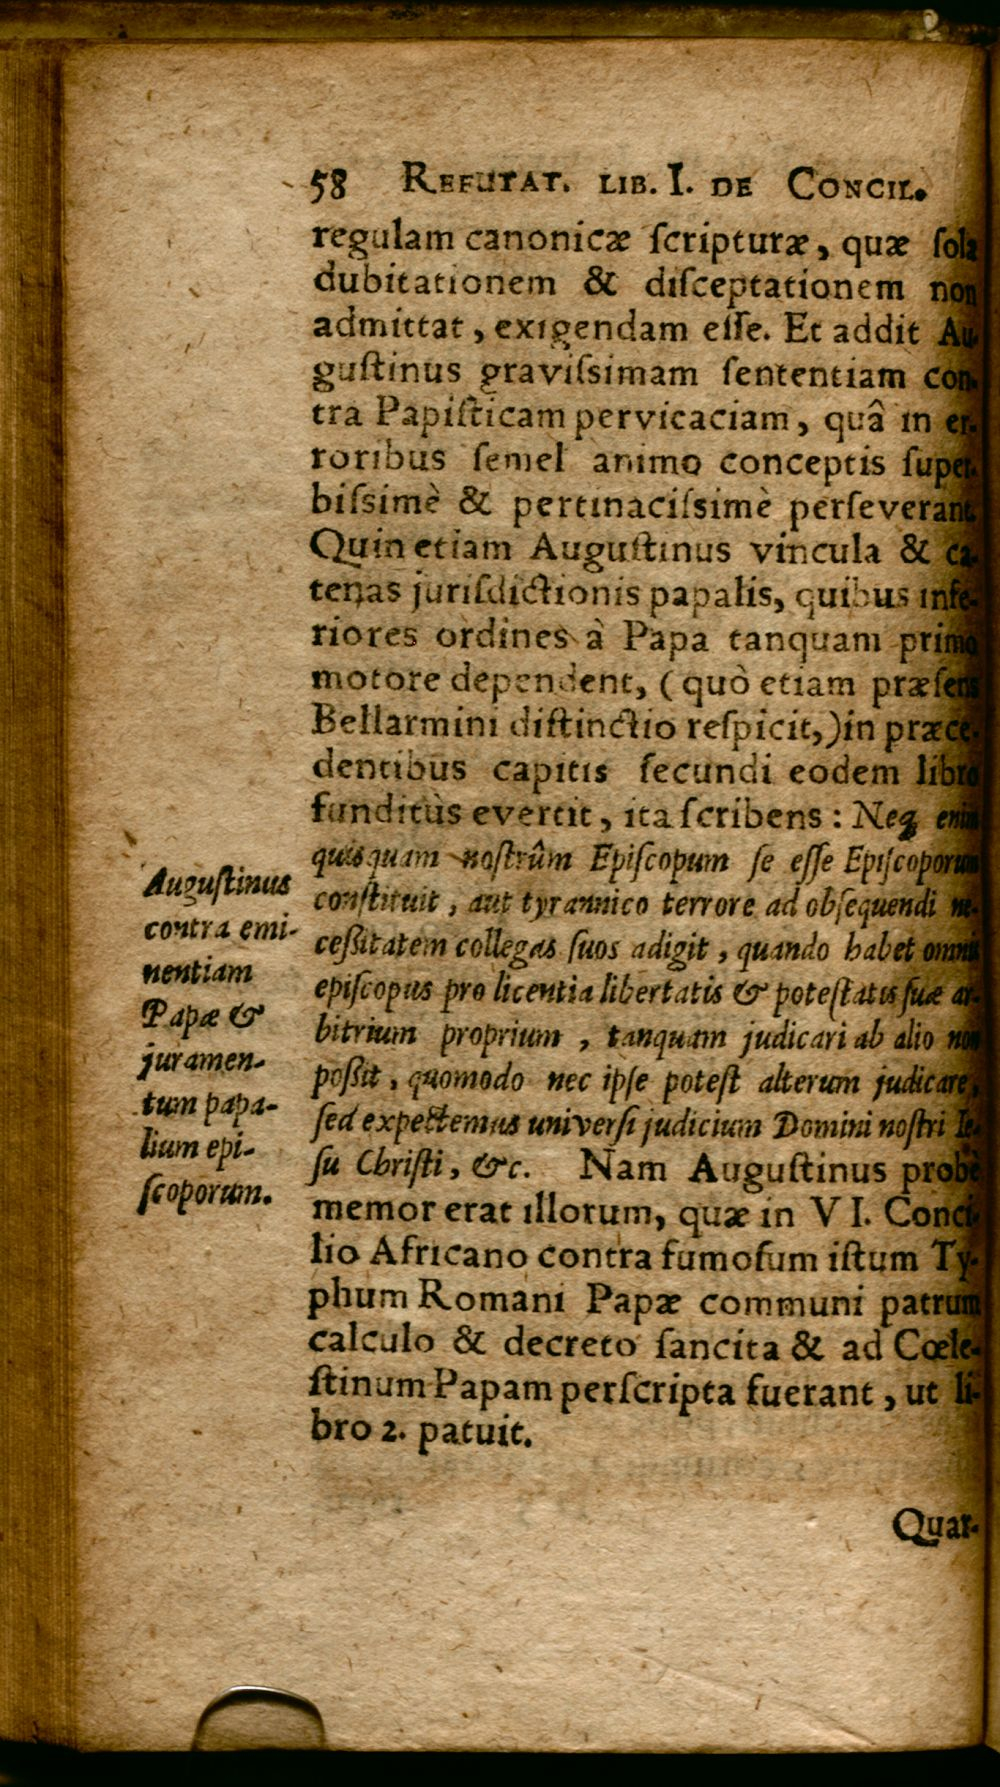 58 REFUTAT. LIB. I. DE CONCIL.
regulam canonicæ ſcripturæ, quæ ſola
dubitationem & diſceptationem non
admittat, exigendam eſſe. Et addit Au-
guſtinus graviſsimam ſententiam con-
tra Papiſticam pervicaciam, quâ in er-
roribus ſemel animo conceptis ſuper-
biſsimè & pertinaciſsimè perſeverant.
Quin etiam Auguſtinus vincula & ca-
tenas juriſdictionis papalis, quibus infe-
riores ordines à Papa tanquam primo
motore dependent, (quò etiam præſens
Bellarmini diſtinctio reſpicit,) in præce-
dentibus capitis ſecundi eodem libro
funditùs evertit, ita ſcribens: Neq; enim
quisquam noſtrûm Epiſcopum ſe eſſe Epiſcoporum
conſtituit, aut tyrannico terrore ad obſequendi ne-
ceßitatem collegas ſuos adigit, quando habet omnis
epiſcopus pro licentia libertatis & poteſtatis ſuæ ar-
bitrium proprium, tanquam judicari ab alio non
poßit, quomodo nec ipſe poteſt alterum judicare,
ſed expectemus univerſi judicium Domini noſtri Ie-
ſu Chriſti, &c. Nam Auguſtinus probè
memor erat illorum, quæ in VI. Conci-
lio Africano contra fumoſum iſtum Ty-
phum Romani Papæ communi patrum
calculo & decreto ſancita & ad Cœle-
ſtinum Papam perſcripta fuerant, ut li-
bro 2. patuit.
Auguſtinus
contra emi-
nentiam
Papæ &
juramen-
tum papa-
lium epi-
ſcoporum.
Quar-